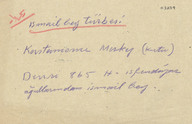 İsmail bey türbesi.
Kastamonu Merkez
Devri 865 H. isfendiyar
oğullarından ismail bey.